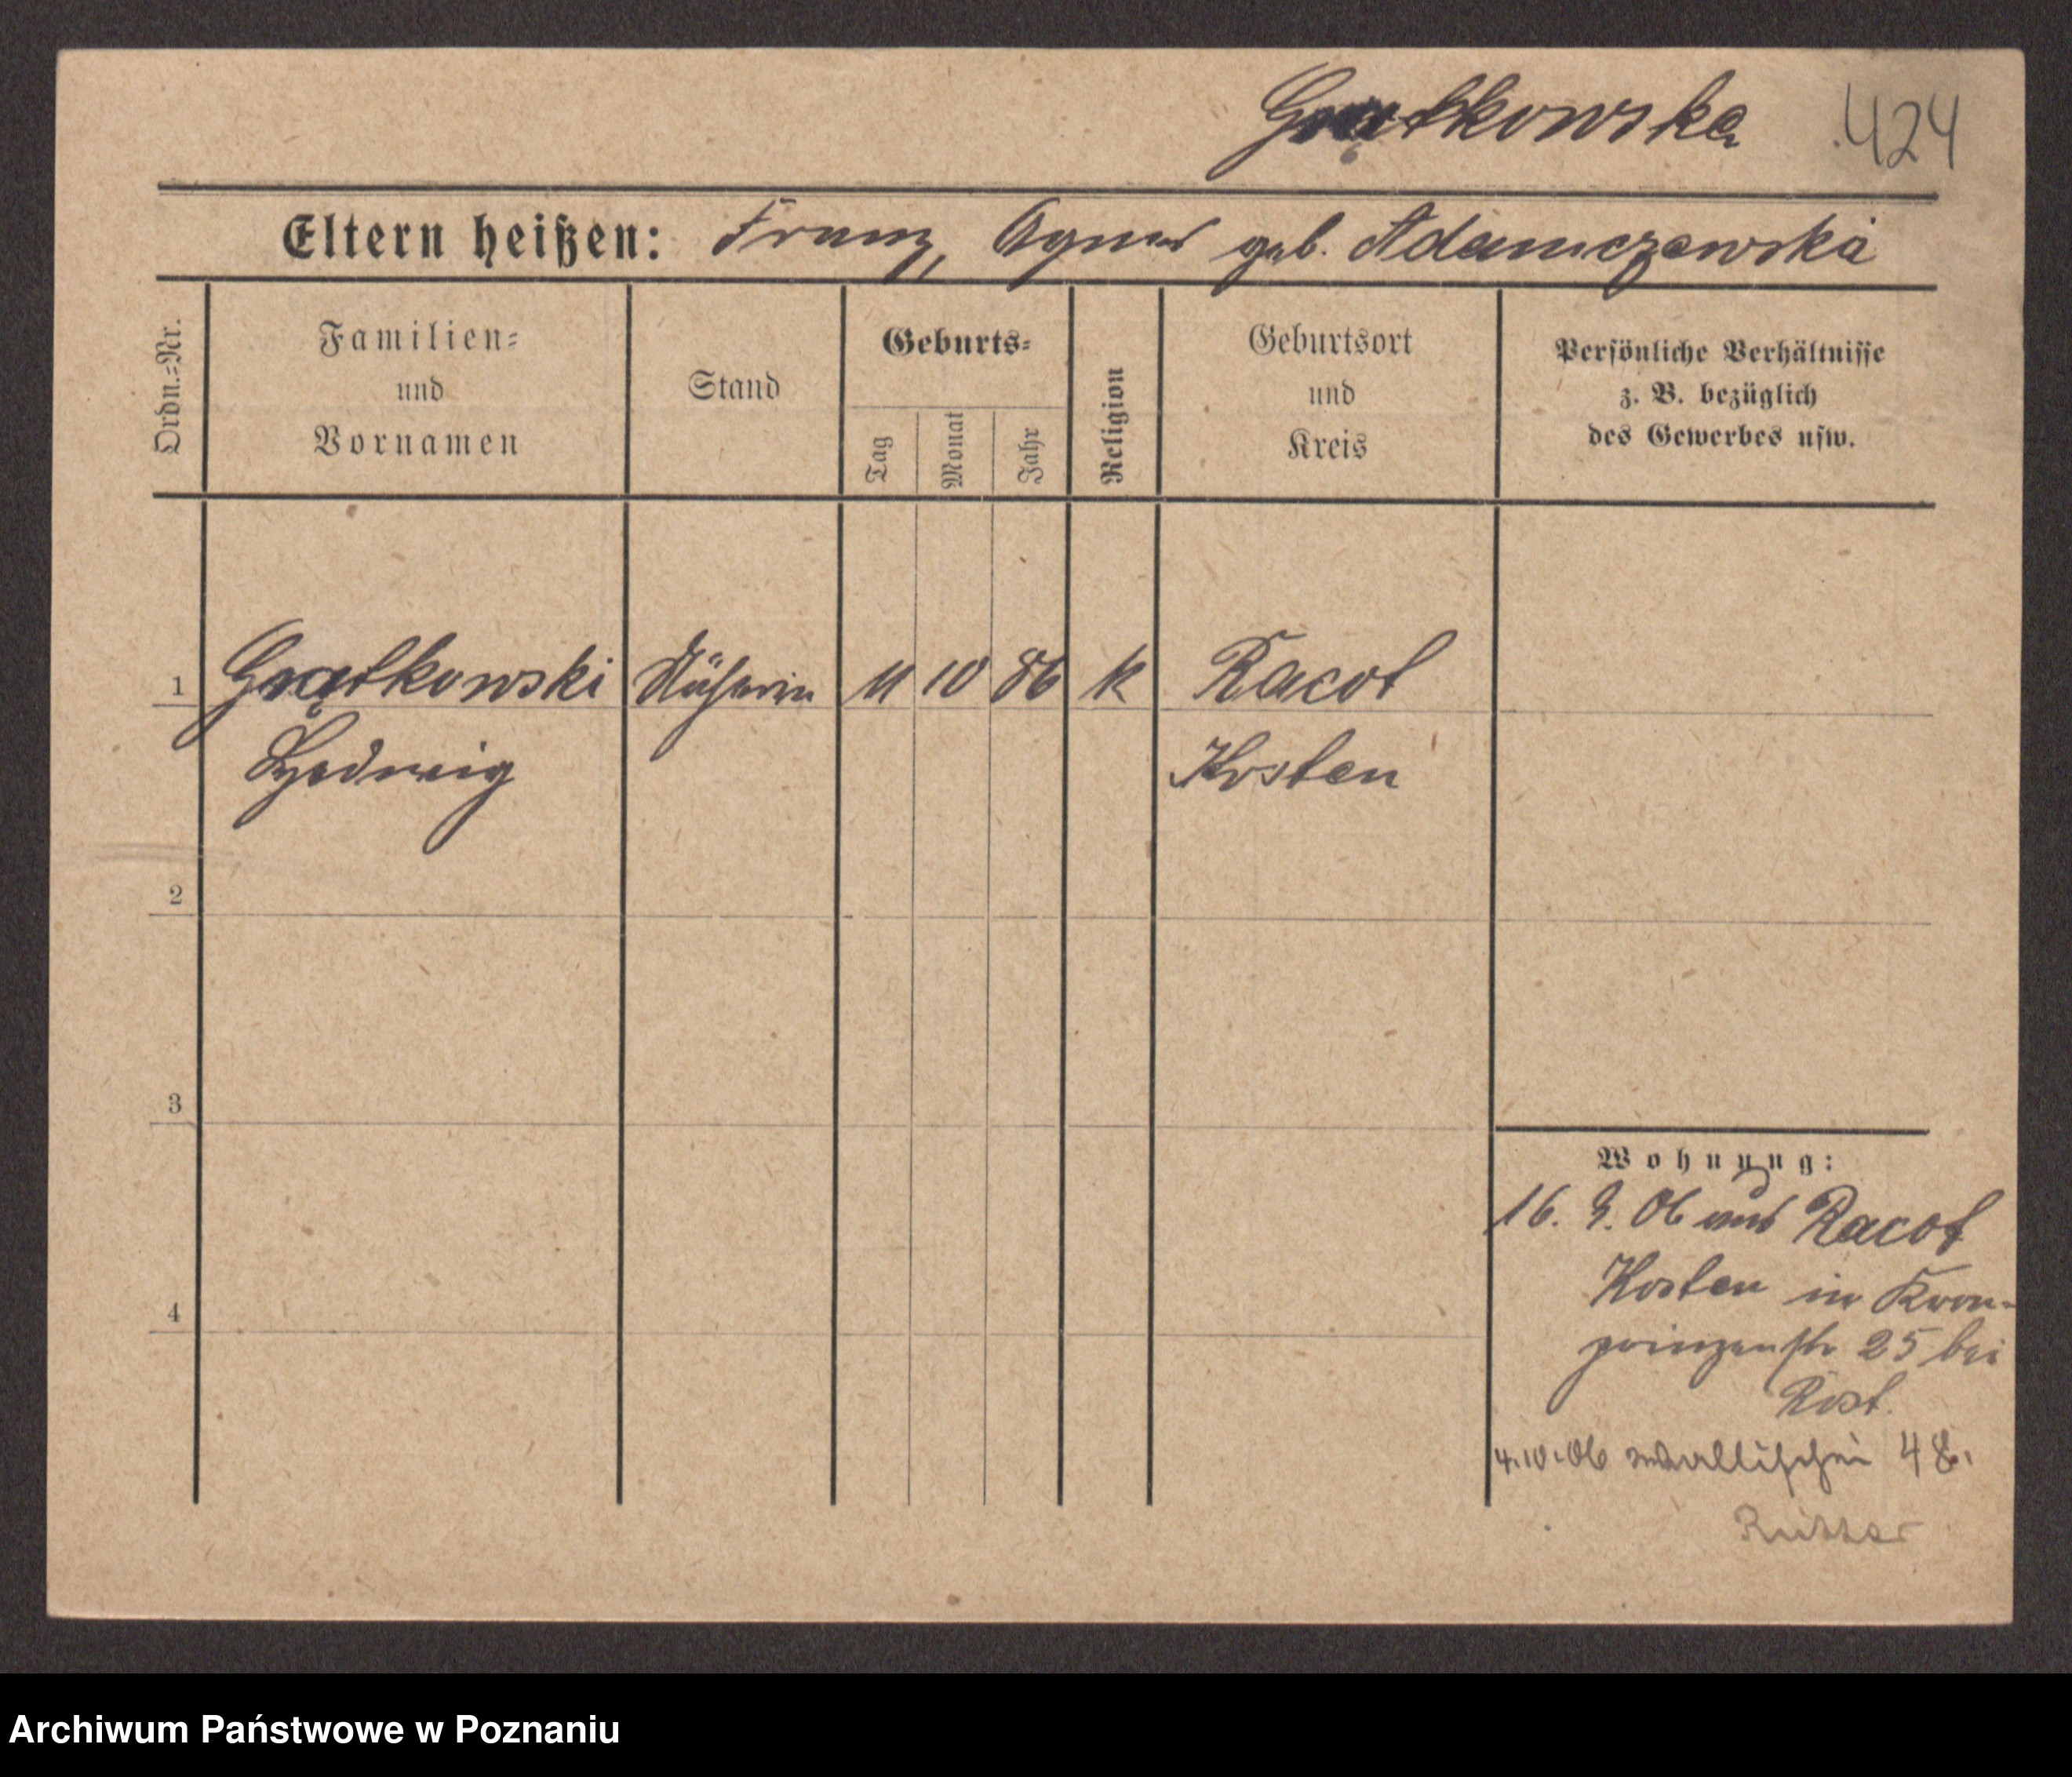 Grątkowska 424
Eltern heißen: Franz, Agnes geb. Adamczewska
Ordn.=Nr.
Familien=
und
Vornamen
Stand
Geburts=
Tag
Monat
Jahr
Religion
Geburtsort
und
Kreis
Persönliche Verhältnisse
z. B. bezüglich
des Gewerbes usw.
1 Grątkowski Näherin 11 10 86 k Racot
Hedwig Kosten
2
3
4
Wohnung:
16. 9. 06 aus Racot
Kosten in Kron-
prinzenstr 25 bei
Rost.
4.10.06 Wallischei 48.
Archiwum Państwowe w Poznaniu